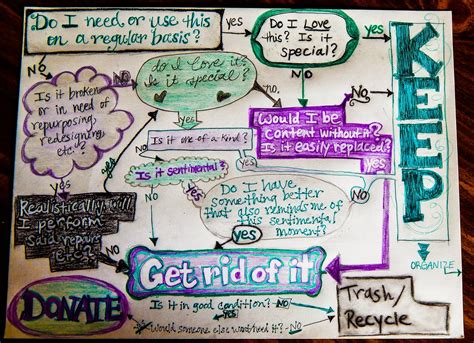 Do I need or use this
on a regular basis?
yes
Do I Love
this? Is it
special?
yes
KEEP
No
No
do I love it?
Is it special?
No
Is it broken
or in need of
repurposing,
redesigning,
etc.?
Would I be
content without it?
Is it easily replaced?
yes
yes
Is it one of a kind?
No
Is it sentimental?
yes
Do I have
something better
that also reminds me of
this sentimental
moment?
yes
yes
No
Realistically, will
I perform
said repairs
etc.?
No
No
ORGANIZE
Get rid of it
DONATE
Is it in good condition?
No
Trash/
Recycle
yes
Would someone else want/need it?
No